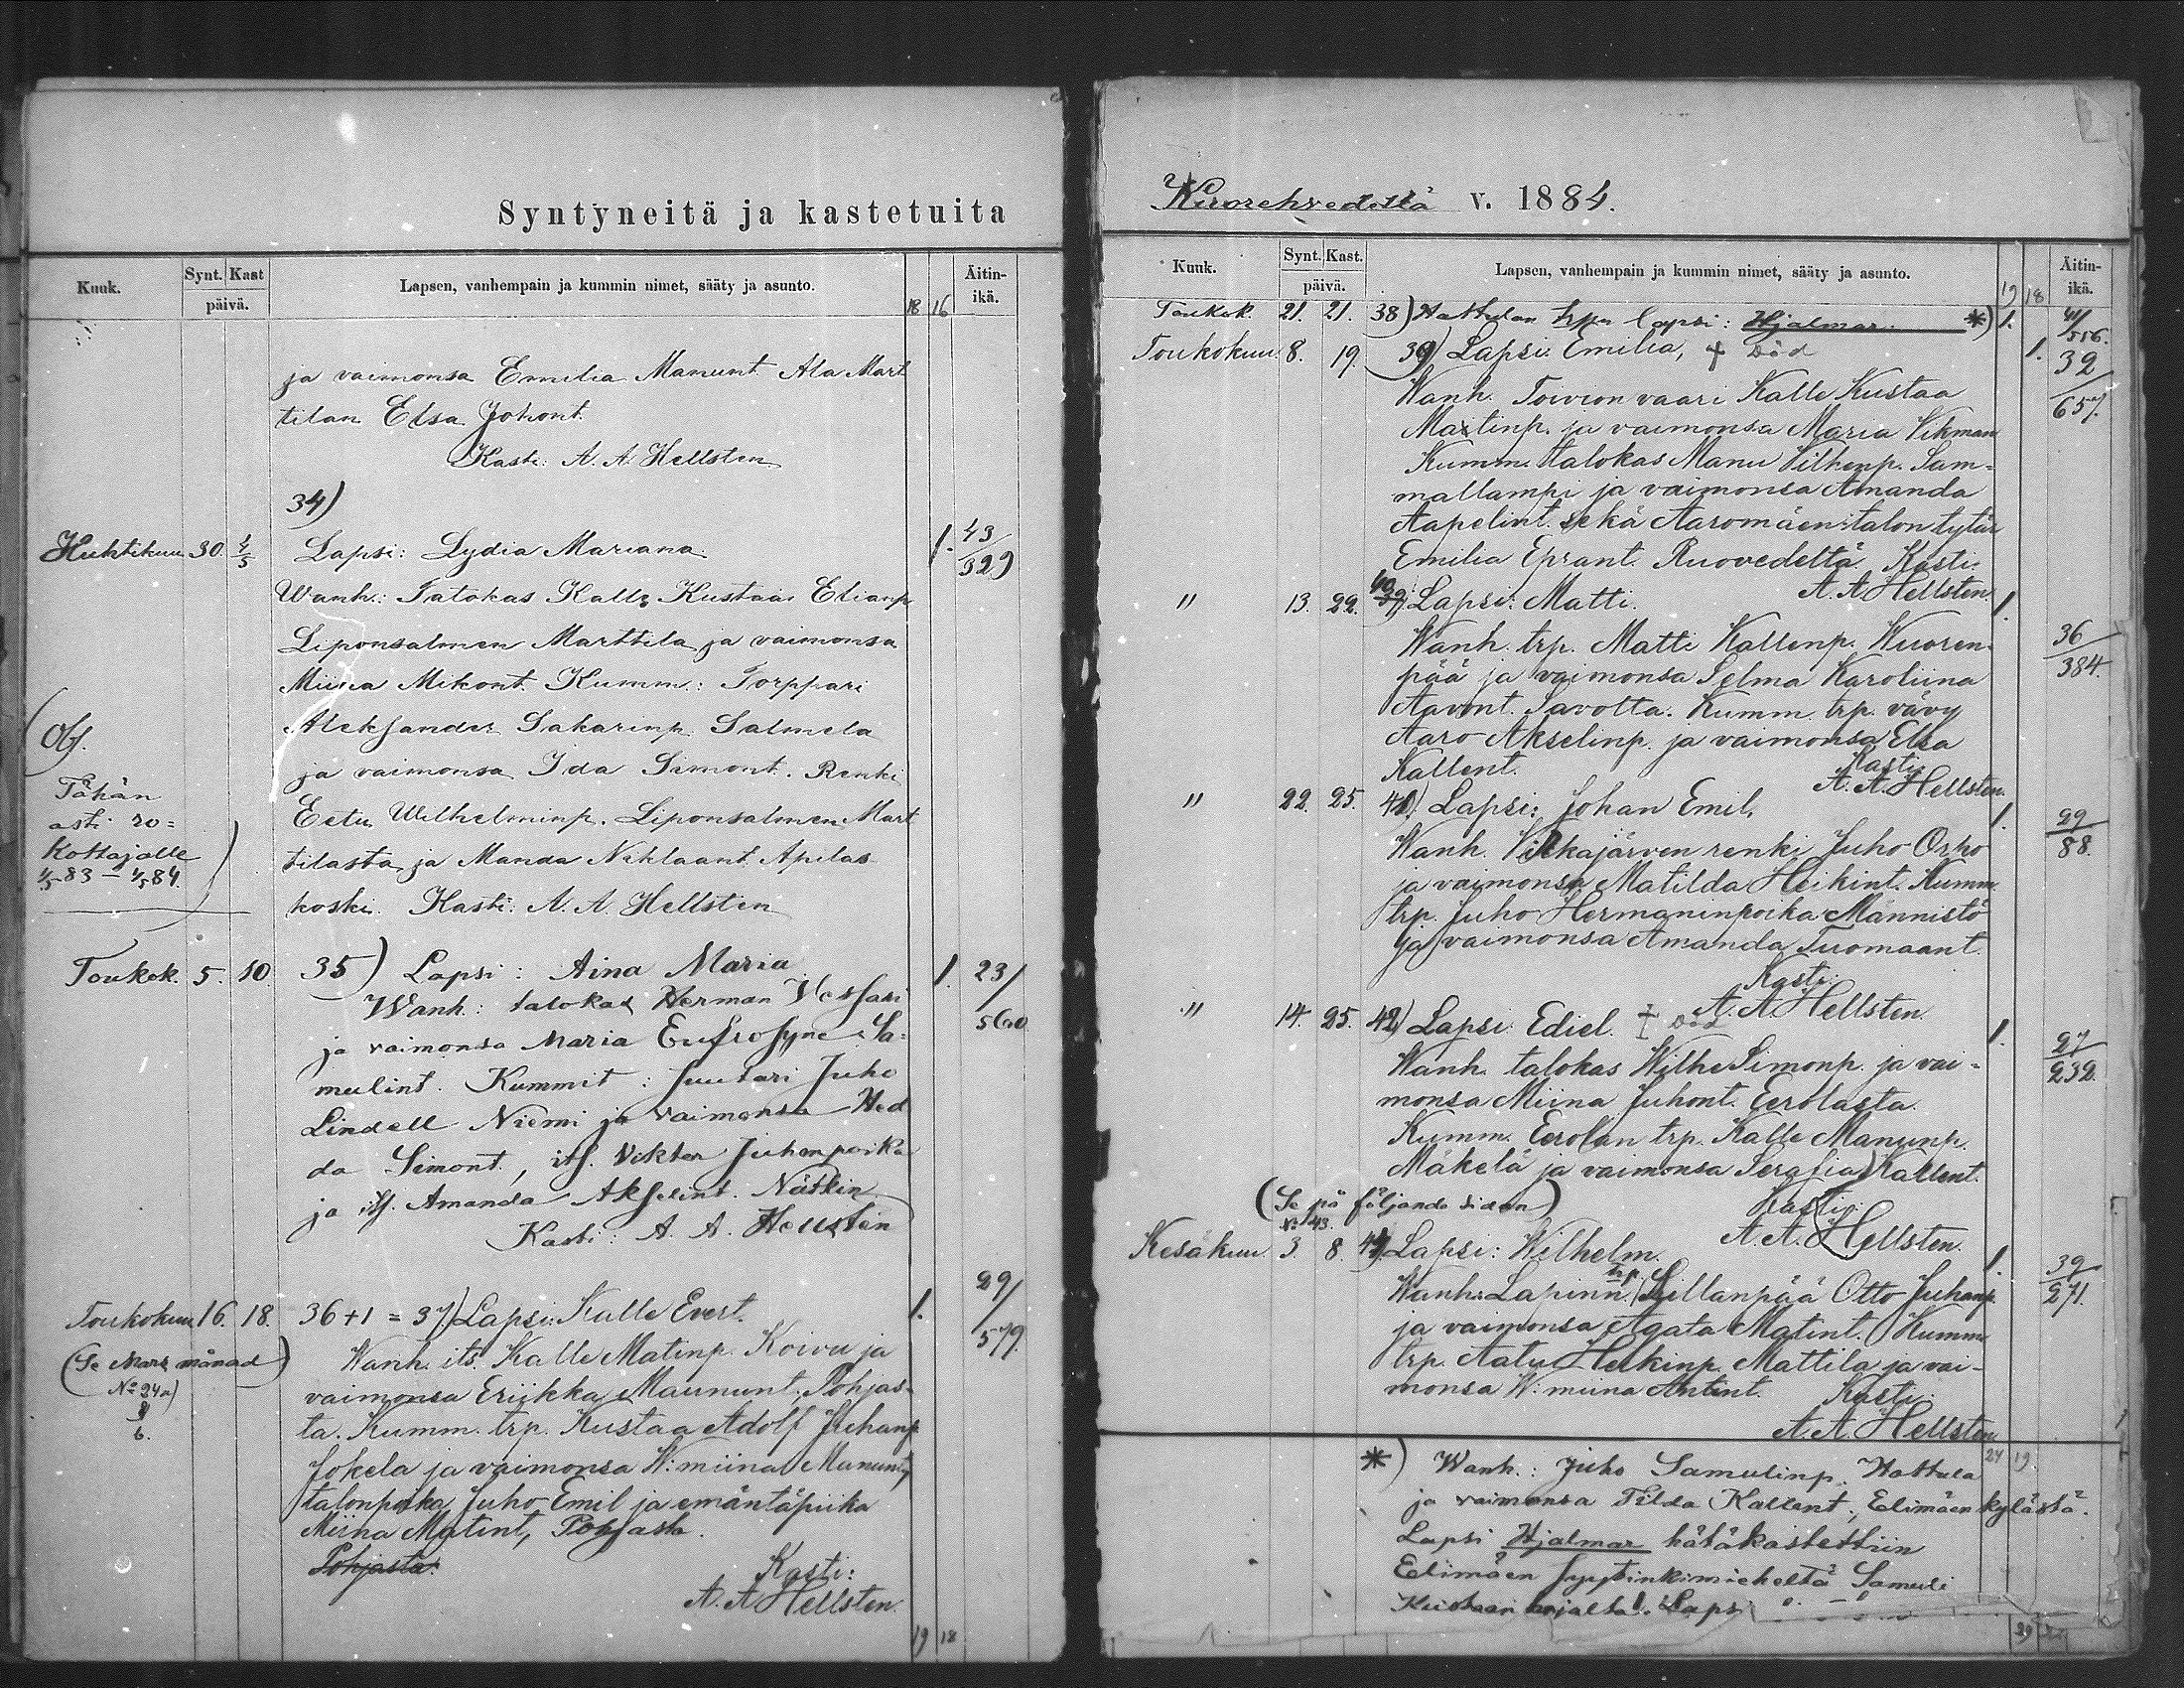 Syntyneitä ja kastetuita
Kuuk.
Synt. Kast
päivä.
Lapsen, vanhempain ja kummin nimet, sääty ja asunto.
18 16
Äitin-
ikä.
ja vaimonsa Emilia Manunt. Ala Mart
tilan Elsa Johont.
Kasti: A. A. Hellsten
34)
Huhtikuu 30. 4/5 Lapsi: Lydia Mariana. 1. 43/329
Wanh.: Talokas Kalle Kustaa Elianp
Liponsalmen Marttila ja vaimonsa
Miina Mikont. Kumm: Torppari
Aleksander Sakarinp. Salmela
ja vaimonsa Ida Simont. Renki
Eetu Wilhelminp. Liponsalmen Mart
tilasta ja Manda Niklaant. Apilas
koski. Kasti: A. A. Hellsten
Obs.
Tähän
asti ro=
kottajalle
1/5 83 – 1/5 84.
Toukok. 5. 10. 35) Lapsi: Aina Maria 1. 23/560
Wanh: talokas Herman Wessari
ja vaimonsa Maria Eufrosyne Sa=
mulint. Kummit: Juutari Juho
Lindell Niemi ja vaimonsa Hed
da Simont., its. Vikter Juhonpoika
ja its. Amanda Akselint. Nätkin
Kasti: A. A. Hellsten
Toukokuu 16. 18. 36+1=37) Lapsi: Kalle Evert. 1. 29/579.
(Se Mars månad)
No 24a)
8/6.
Wanh. its. Kalle Matinp. Koivu ja
vaimonsa Eriikka Maununt, Pohjas-
ta. Kumm. trp. Kustaa Adolf Juhanp
Jokela ja vaimonsa W:miina Manunt,
talonpoika Juho Emil ja emäntäpiika
Miina Matint, Pohjasta.
Pohjasta.
Kasti:
A. A Hellsten.
19 18
Kuorehvedellä v. 1884.
Kuuk.
Synt. Kast.
päivä.
Lapsen, vanhempain ja kummin nimet, sääty ja asunto.
19 18
Äitin-
ikä.
Toukok. 21. 21. 38) Hattulan trpn lapsi: Hjalmar *) 1. 41/556.
Toukokuu. 8. 19. 39) Lapsi Emilia, † Död 1. 32/657.
Wanh. Toivion vaari Kalle Kustaa
Martinp. ja vaimonsa Maria Vikman
Kumm. talokas Manu Vilhenp. Sam-
mallampi ja vaimonsa Amanda
Aapelint. sekä Aaromäen talon tytär
Emilia Eprant. Ruovedeltä. Kasti:
A. A Hellsten.
" 13. 22. 40 39) Lapsi: Matti. 1. 36/384.
Wanh. trp. Matti Kallenp. Wuoren-
pää ja vaimonsa Selma Karoliina
Aavont. Savotta. Kumm. trp. vävy
Aaro Akselinp. ja vaimonsa Elsa
Kallent. Kasti
A. A. Hellsten.
" 22. 25. 41) Lapsi: Johan Emil. 1. 29/88.
Wanh. Vilkajärven renki Juho Orho
ja vaimonsa Matilda Heikint. Kumm.
trp. Juho Hermaninpoika Männistö
ja vaimonsa Amanda Tuomaant.
Kasti:
A. A Hellsten.
" 14. 25. 42) Lapsi: Ediel. † Död 1. 27/232.
Wanh. talokas Wilhe Simonp. ja vai-
monsa Miina Juhont. Eerolasta.
Kumm. Eerolan trp. Kalle Manunp.
Mäkelä ja vaimonsa Serafia Kallent.
Kasti:
A. A. Hellsten.
(Se på följande sidan)
No 43.
Kesäkuu. 3. 8. Lapsi: Wilhelm. 1. 39/271.
Wanh: Lapinn. trp. Sillanpää Otto Juhanp.
ja vaimonsa Agata Matint. Kumm
trp. Aatu Heikinp. Mattila ja vai-
monsa W:miina Antint. Kasti:
A. A. Hellsten
24 19
*) Wanh.: Juho Samulinp. Hattula
ja vaimonsa Tilda Kallent, Elimäen kylästä.
Lapsi Hjalmar hätäkastettiin
Elimäen Samuli
Kustaan Lapsi
29